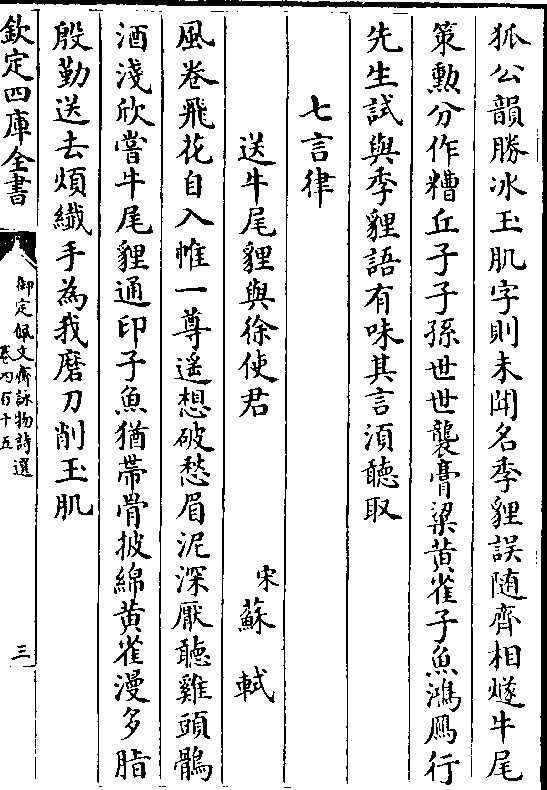 狐公韻勝冰玉肌字則未聞名季貍誤随齊相燧牛尾
策勲分作糟丘子子孫世世襲膏粱黄雀子魚鴻鴈行
先生試與季貍語有味其言湏聽取
七言律
送牛尾貍與徐使君
宋蘇軾
風卷飛花自入帷一尊遥想破愁眉泥深厭聽雞頭鶻
酒淺欣嘗牛尾貍通印子魚猶帶骨披綿黄雀漫多脂
殷勤送去煩纎手為我磨刀削玉肌
欽定四庫全書
御定佩文齋詠物詩選
卷四百十五
三